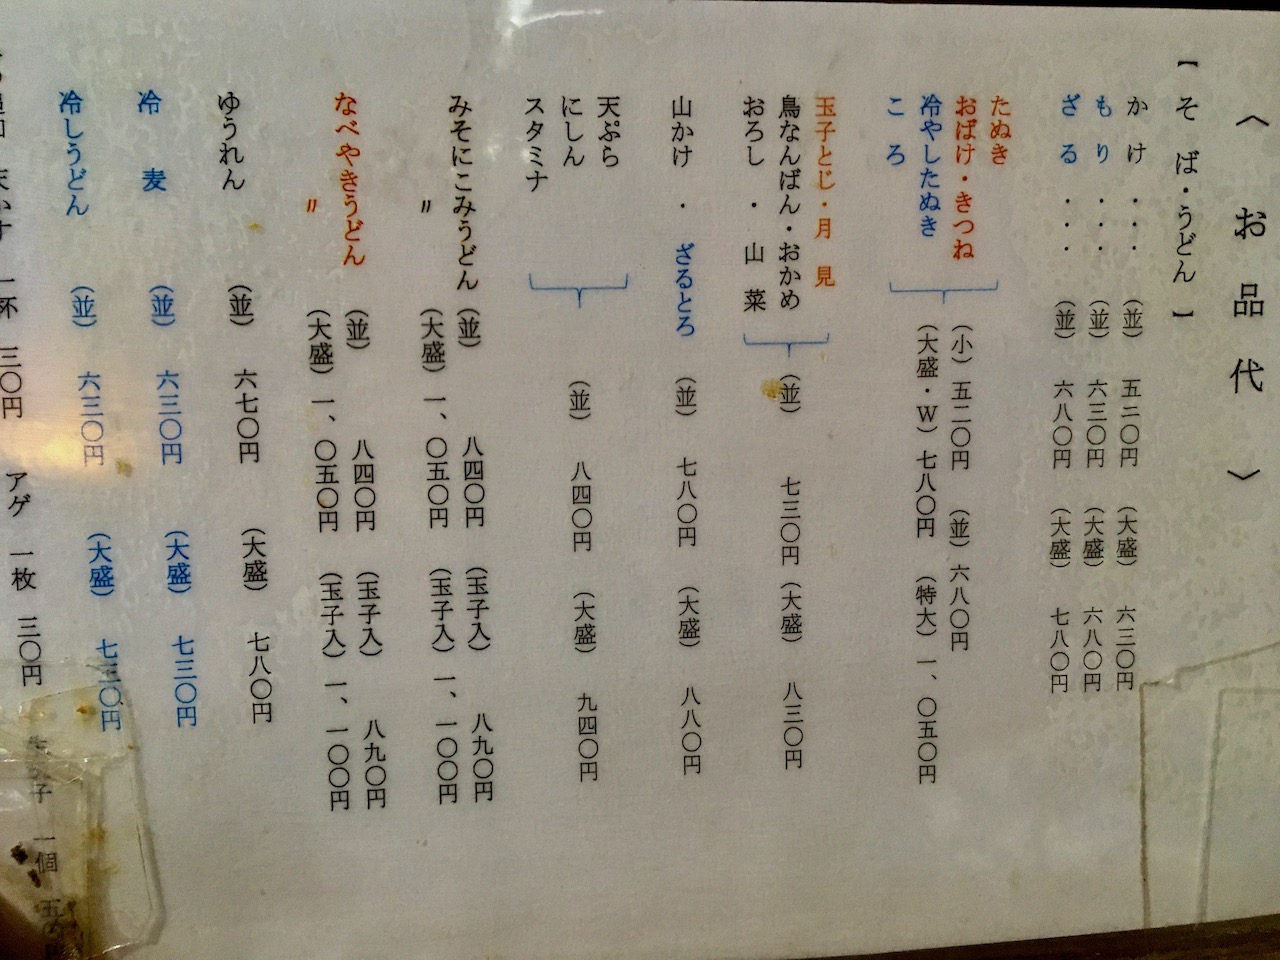 〈お品代〉
【そば・うどん】
かけ・・・(並)五二〇円(大盛)六三〇円
もり・・・(並)六三〇円(大盛)六八〇円
ざる・・・(並)六八〇円(大盛)七八〇円
たぬき
おばけ・きつね
冷やしたぬき
ころ
(小)五二〇円(並)六八〇円
(大盛・W)七八〇円(特大)一、〇五〇円
玉子とじ・月見
鳥なんばん・おかめ
おろし・山菜
(並)七三〇円(大盛)八三〇円
山かけ・ざるとろ(並)七八〇円(大盛)八八〇円
天ぷら
にしん
スタミナ
(並)八四〇円(大盛)九四〇円
みそにこみうどん(並)八四〇円(玉子入)八九〇円
〃(大盛)一、〇五〇円(玉子入)一、一〇〇円
なべやきうどん(並)八四〇円(玉子入)八九〇円
〃(大盛)一、〇五〇円(玉子入)一、一〇〇円
ゆうれん(並)六七〇円(大盛)七八〇円
冷麦(並)六三〇円(大盛)七三〇円
冷しうどん(並)六三〇円(大盛)七三〇円
一杯三〇円アゲ一枚三〇円 一個